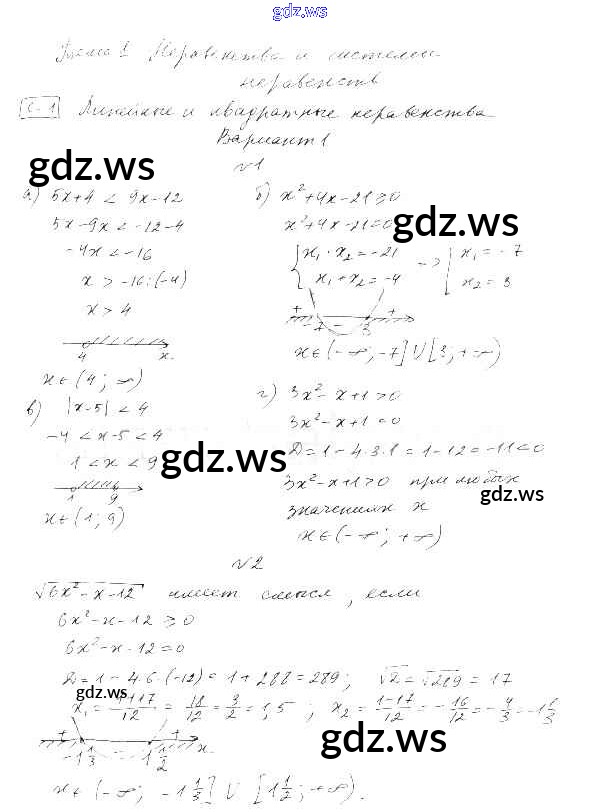 gdz.ws
Тема 1 Неравенства и системы
неравенств
С-1 Линейные и квадратные неравенства
Вариант 1
gdz.ws
№1
а) 5x+4 < 9x-12
5x-9x < -12-4
-4x < -16
x > -16:(-4)
x > 4
4 x
x∈(4; ∞)
б) x²+4x-21≥0
x²+4x-21=0
gdz.ws
{ x₁·x₂=-21
x₁+x₂=-4 => [ x₁=-7
x₂=3
+ -7 - 3 +
x∈(-∞; -7]∪[3; +∞)
в) |x-5| < 4
-4 < x-5 < 4
1 < x < 9
gdz.ws
1 9
x∈(1; 9)
г) 3x²-x+1>0
3x²-x+1=0
D=1-4·3·1=1-12=-11<0
3x²-x+1>0 при любых
gdz.ws
значениях x
x∈(-∞; +∞)
№2
√6x²-x-12 имеет смысл, если
6x²-x-12≥0
6x²-x-12=0
D=1-4·6·(-12)=1+288=289; √D=√289=17
gdz.ws
x₁=1+17/12=18/12=3/2=1,5; x₂=1-17/12=-16/12=-4/3=-1 1/3
gdz.ws
+ -1 1/3 - 1 1/2 + x
x∈(-∞; -1 1/3]∪[1 1/2; +∞).